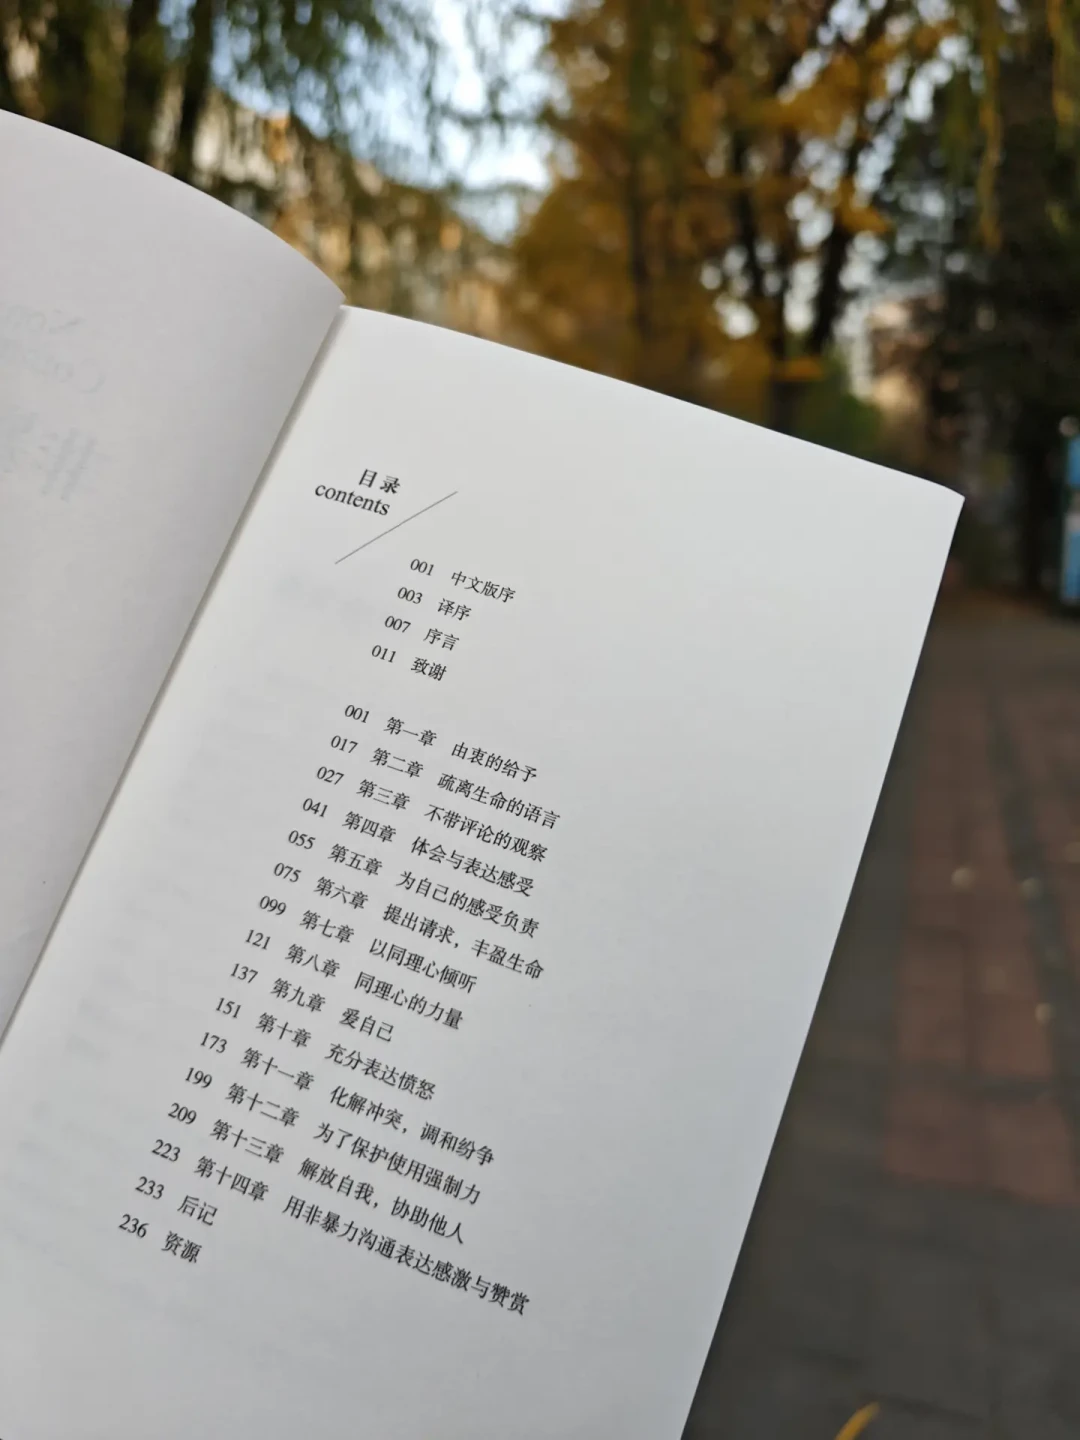 目录
contents
001 中文版序
003 译序
007 序言
011 致谢
001 第一章 由衷的给予
017 第二章 疏离生命的语言
027 第三章 不带评论的观察
041 第四章 体会与表达感受
055 第五章 为自己的感受负责
075 第六章 提出请求，丰盈生命
099 第七章 以同理心倾听
121 第八章 同理心的力量
137 第九章 爱自己
151 第十章 充分表达愤怒
173 第十一章 化解冲突，调和纷争
199 第十二章 为了保护使用强制力
209 第十三章 解放自我，协助他人
223 第十四章 用非暴力沟通表达感激与赞赏
233 后记
236 资源